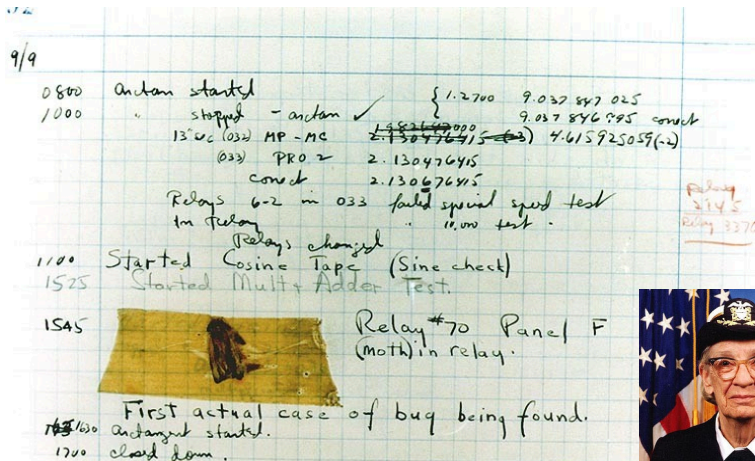 9/9
0800 arctan started { 1.2700 9.037 847 025
1000 " stopped - arctan ✓ 9.037 846 995 conect
13"uc (032) MP - MC 2.130476415 (-3) 4.615925059(-2)
(033) PRO 2 2.130476415
conect 2.130676415
Relays 6-2 in 033 failed special speed test
In Relay " 10.000 test.
Relay
2145
Relay 3370
Relays changed
1100 Started Cosine Tape (Sine check)
1525 Started Mult + Adder Test.
1545 Relay #70 Panel F
(moth) in relay.
First actual case of bug being found.
1630 arctangent started.
1700 closed down.